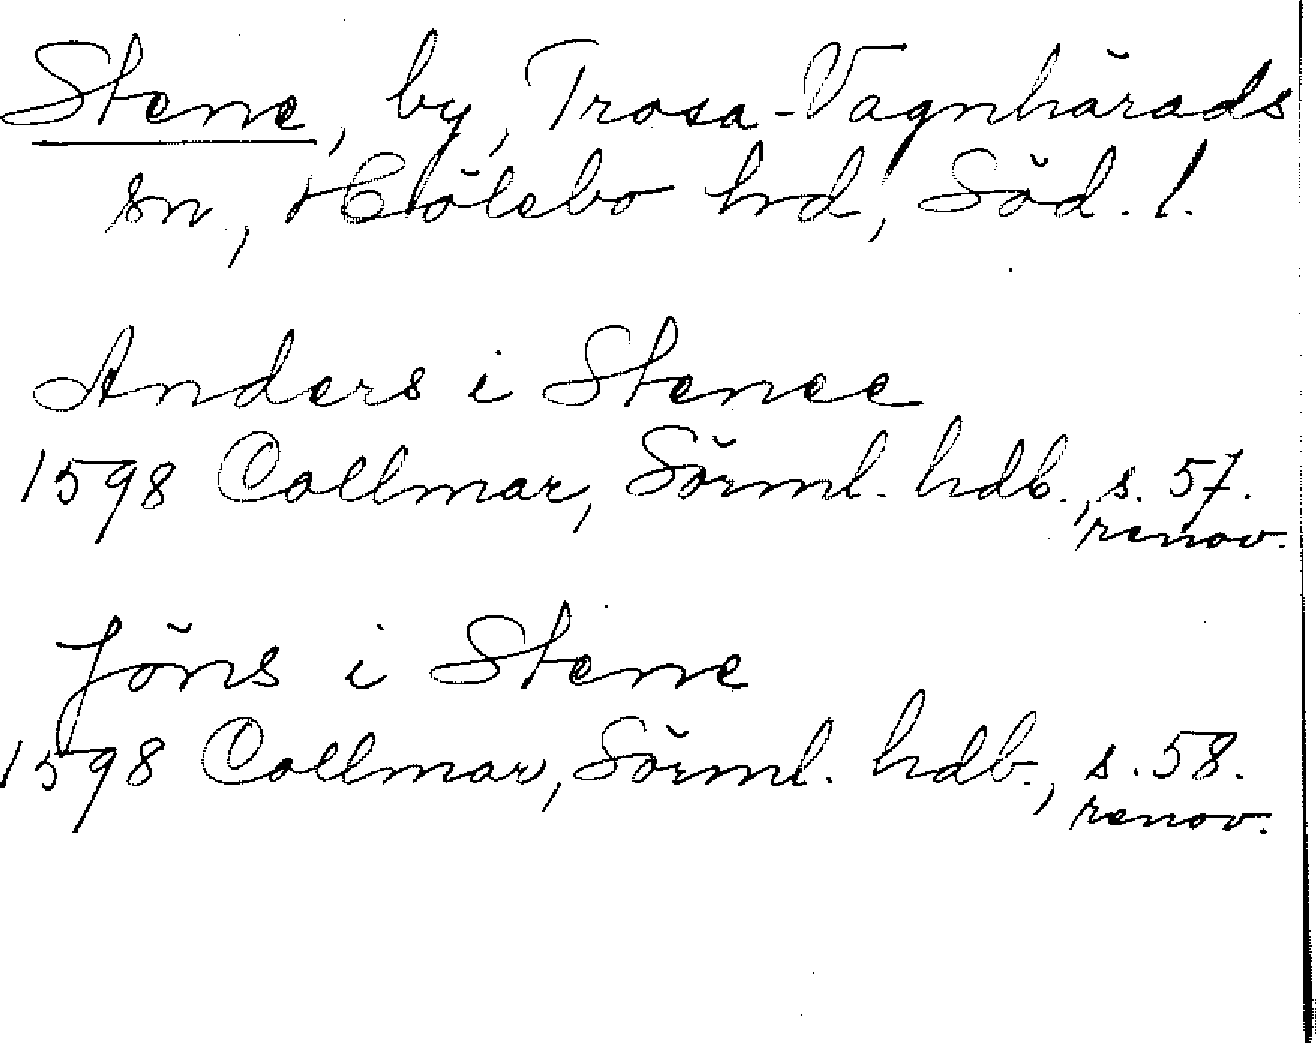 Stene, by, Trosa-Vagnhärads
sn, Hölebo hrd, Söd. l.
Anders i Stenee
1598 Collmar, Sörml. hdb., s. 57.
renov.
Jöns i Stene
1598 Collmar, Sörml. hdb., s. 58.
renov.